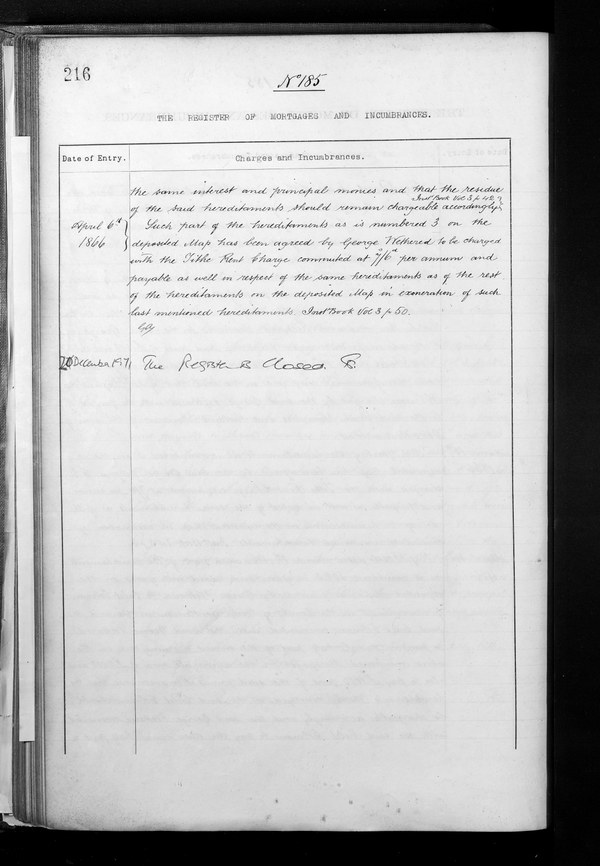 216
No 185
THE REGISTER OF MORTGAGES AND INCUMBRANCES.
Date of Entry.
Charges and Incumbrances.
the same interest and principal monies and that the residue
Inst Book Vol 3 p 42
of the said hereditaments should remain chargeable accordingly
April 6th
1866
Such part of the hereditaments as is numbered 3 on the
deposited Map has been agreed by George Wethered to be charged
with the Tithe Rent Charge commuted at 7s/6d per annum and
payable as well in respect of the same hereditaments as of the rest
of the hereditaments on the deposited Map in exoneration of such
last mentioned hereditaments. Inst Book Vol 3 p 50.
December 1971 The Register is Closed.